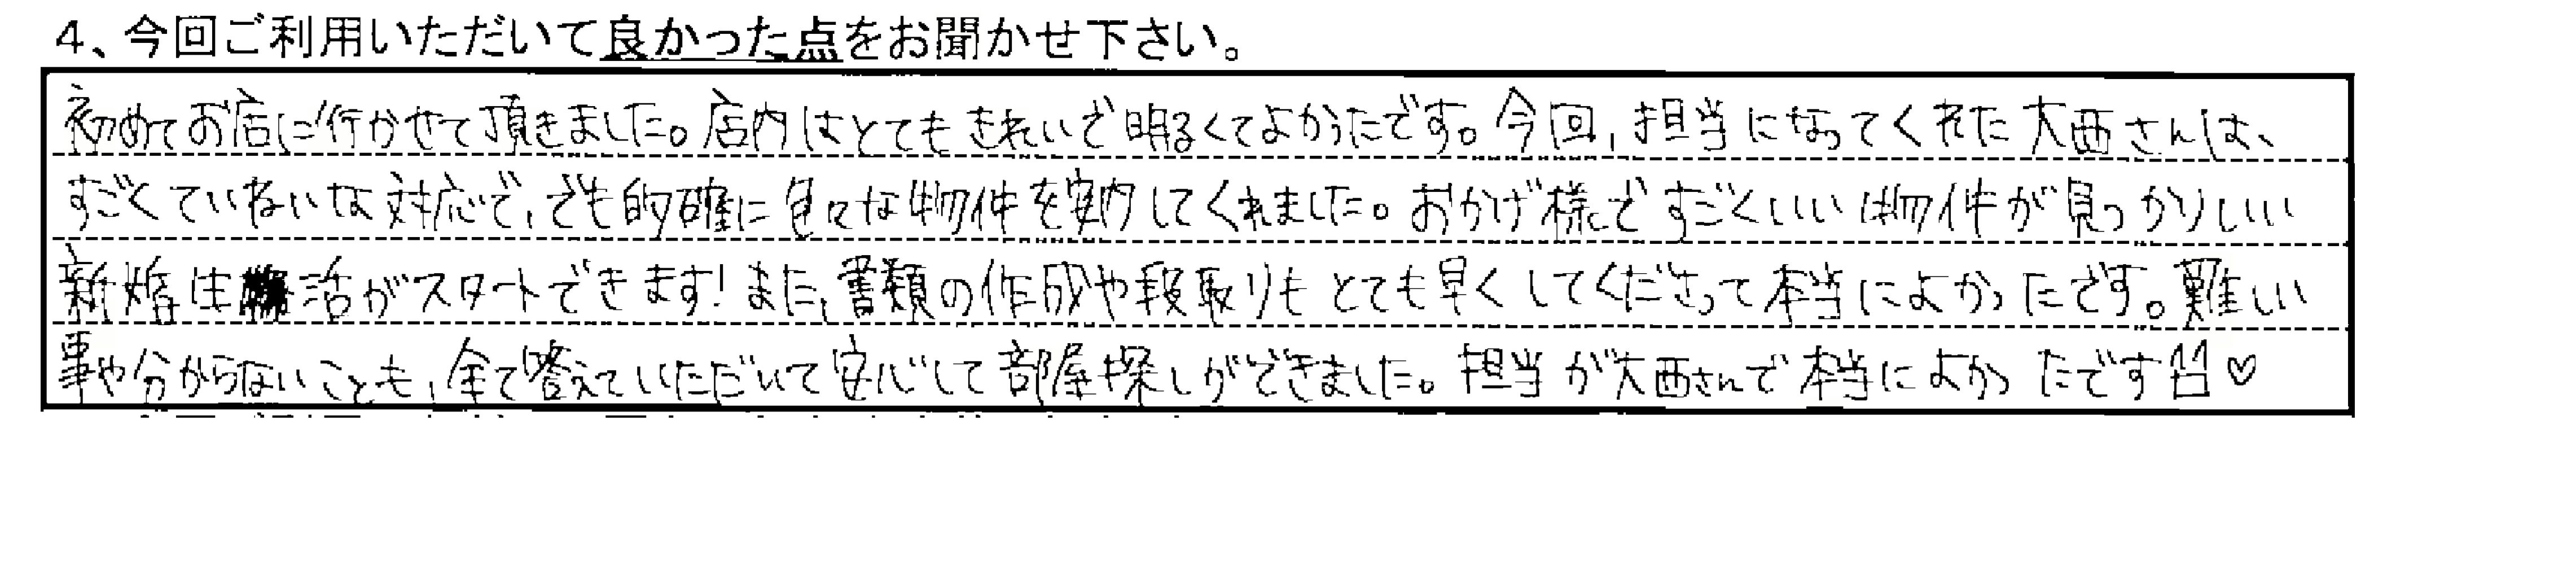 4、今回ご利用いただいて良かった点をお聞かせ下さい。
初めてお店に行かせて頂きました。店内はとてもきれいで明るくてよかったです。今回、担当になってくれた大西さんは、
すごくていねいな対応で、でも的確に色々な物件を案内してくれました。おかげ様ですごくいい物件が見つかりしいい
新婚生活がスタートできます!また、書類の作成や段取りもとても早くしてくださって本当によかったです。難しい
事や分からないことも、全て答えていただいて安心して部屋探しができました。担当が大西さんで本当によかったです!!♡